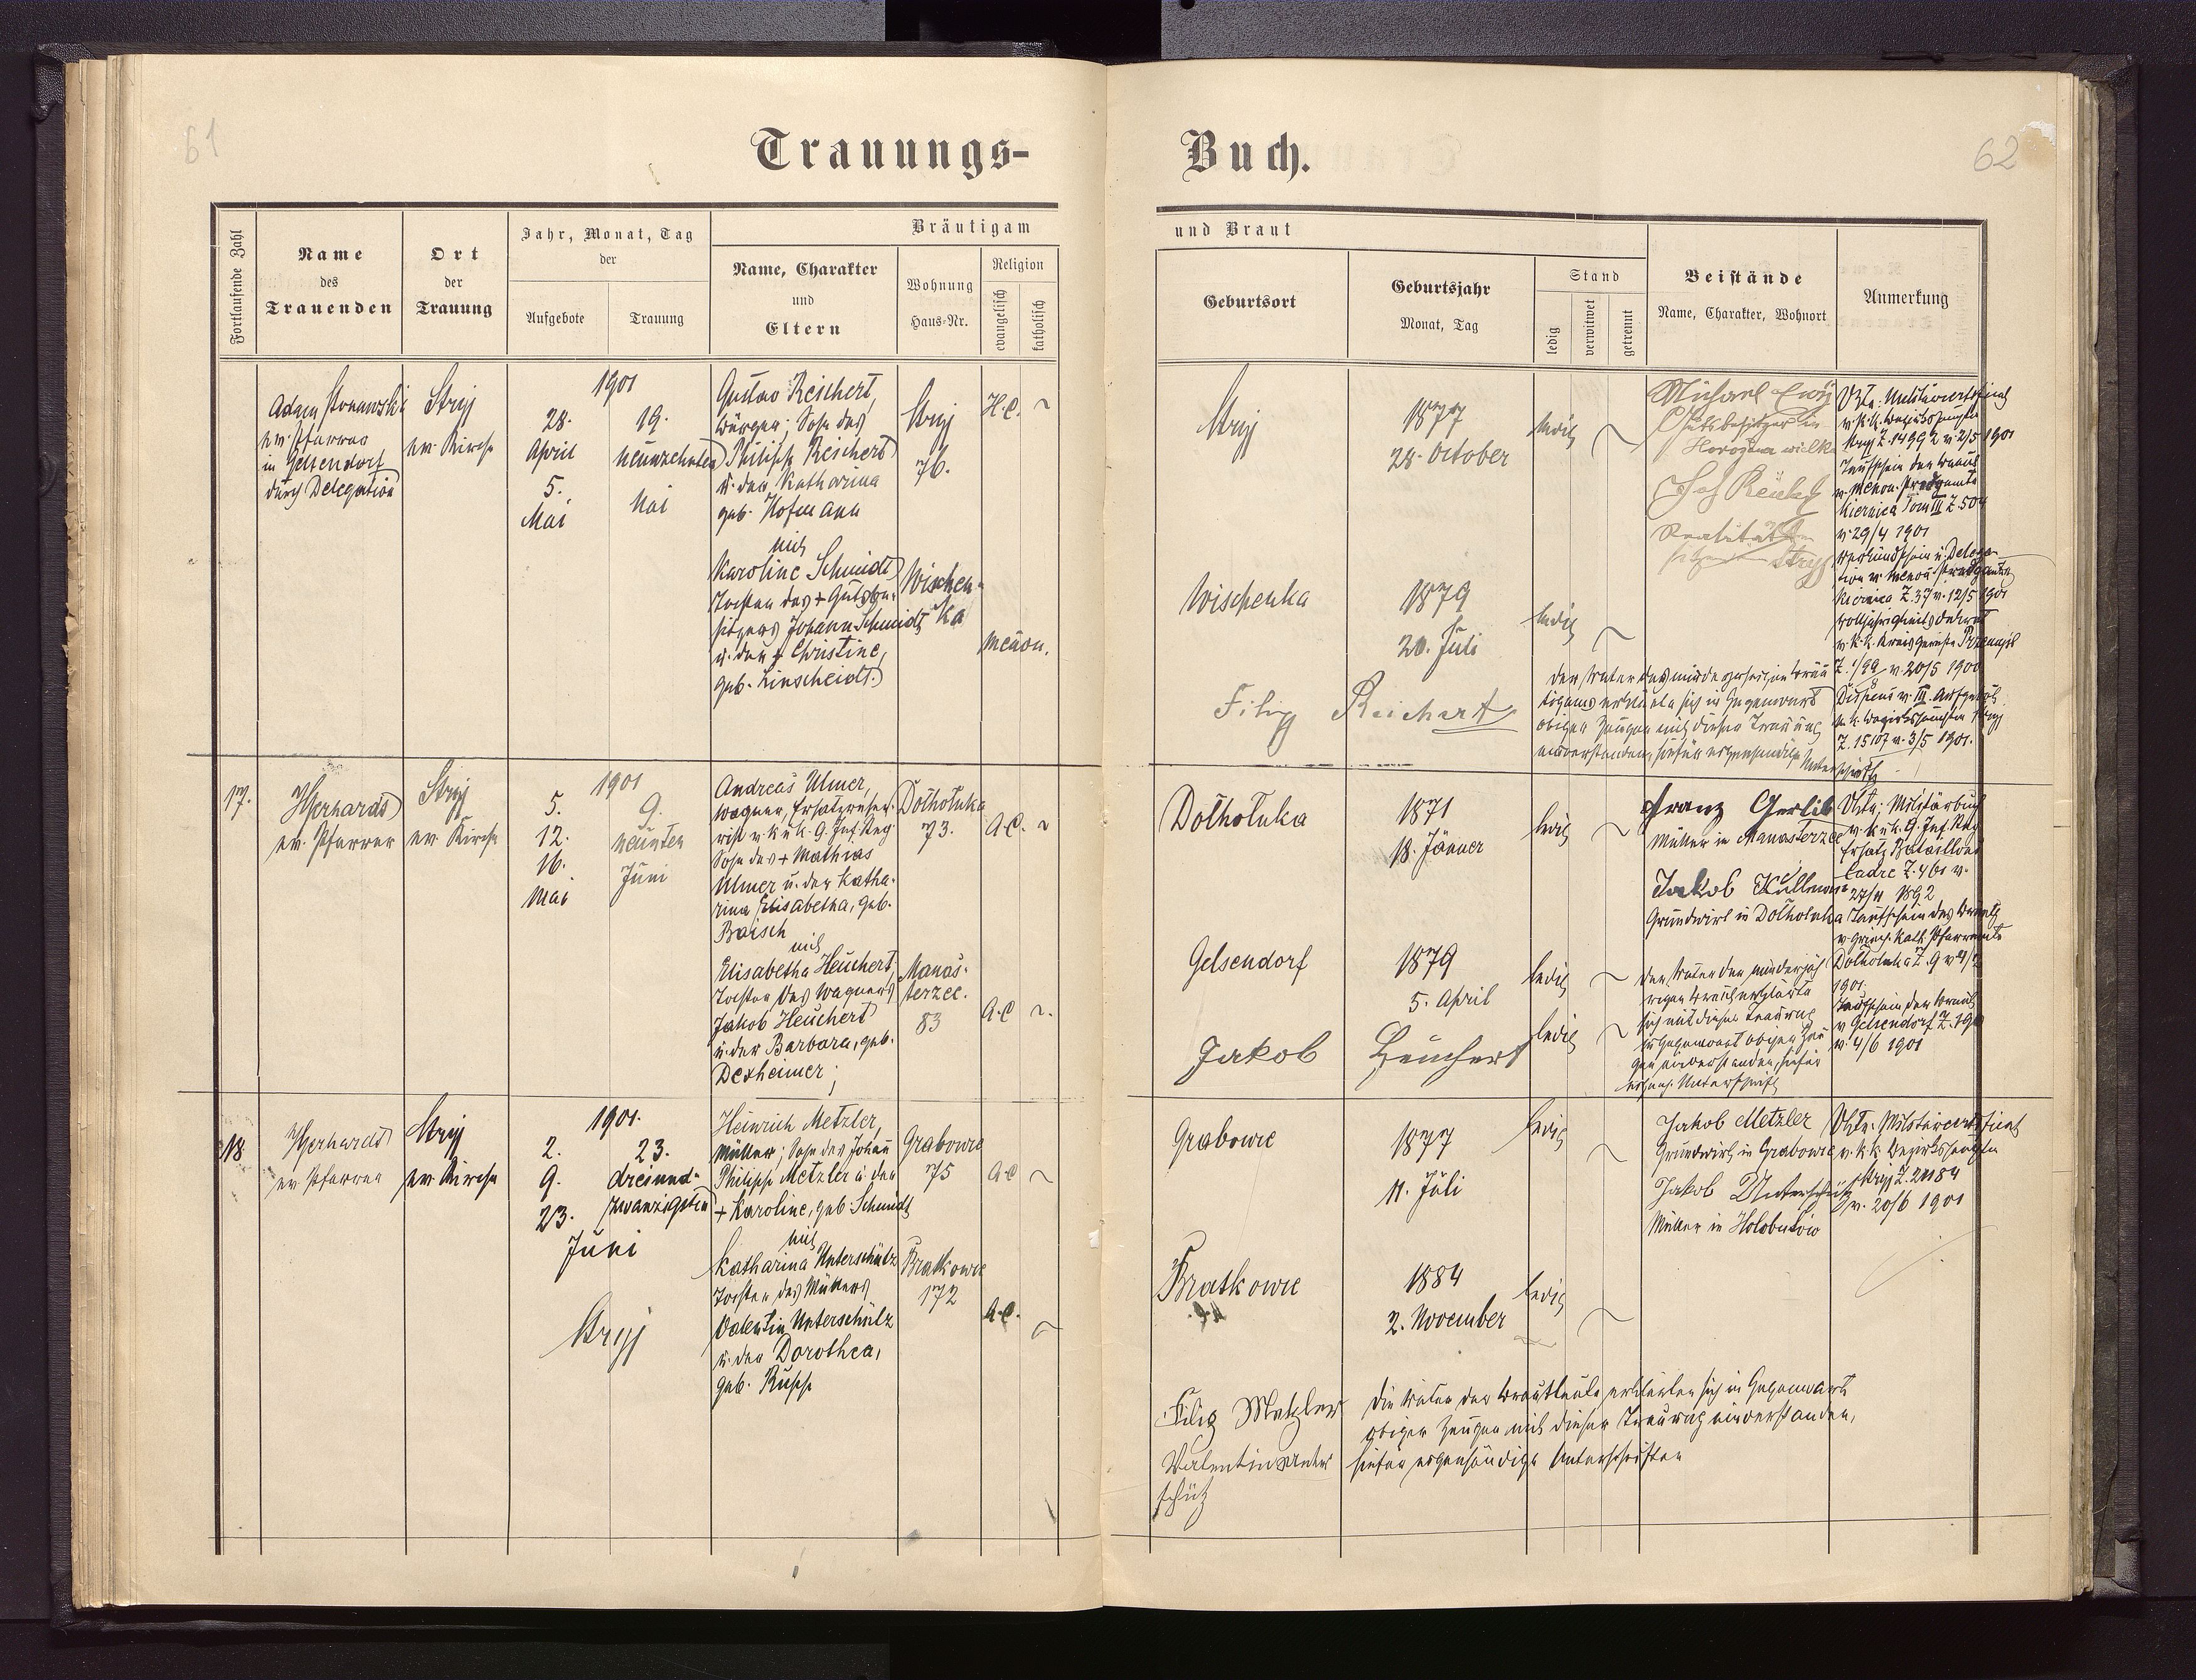 61
Trauungs-
Fortlaufende Zahl
Name
des
Trauenden
Ort
der
Trauung
Jahr, Monat, Tag
der
Aufgebote
Trauung
Bräutigam
Name, Charakter
und
Eltern
Wohnung
Haus-Nr.
Religion
evangelisch
katholisch
Adam
ev. Pfarrer
in Gelsendorf
durch Delegation
Stryj
ev. Kirche
1901
28.
April
5.
Mai
19.
neunzehnten
Mai
Gustav Reichert,
Bürger; Sohn des
Philipp Reichert
u. der Katharina
geb. Hofmann
mit
Karoline Schmidt
Tochter des + Gutsbe-
sitzers Johann Schmidt
u. der + Christine,
geb. Linscheidt.
Stryj
76.
Wischen-
ka
H.C.
menon.
17.
ev. Pfarrer
Stryj
ev. Kirche
1901
5.
12.
16.
Mai
9.
neunten
Juni
Andreas Ulmer,
Wagner, Ersatzreser-
vist v. k. u. k. 9. Inf. Reg.
Sohn des + Mathias
Ulmer u. der Katha-
rina Elisabetha, geb.
Baisch
mit
Elisabetha Heuchert,
Tochter des Wagners
Jakob Heuchert
u. der Barbara, geb.
Dexheimer;
Dolholuka
73.
A.C.
Manas-
terzec.
83
A.C.
18.
ev. Pfarrer
Stryj
ev. Kirche
1901.
2.
9.
23.
Juni
23.
dreiund-
zwanzigsten
Stryj
Heinrich Metzler,
Müller; Sohn des Johann
Philipp Metzler u. der
+ Karoline, geb. Schmidt
mit
Katharina Unterschütz
Tochter des Müllers
Valentin Unterschütz
u. der Dorothea,
geb. Rupp
Grabowce
75
A.C.
Bratkowce
172
A.C.
Buch.
62
und Braut
Geburtsort
Geburtsjahr
Monat, Tag
Stand
ledig
verwitwet
getrennt
Beistände
Name, Charakter, Wohnort
Anmerkung
Stryj
1877
28. October
ledig
Michael
Gutsbesitzer in
Horożana wielka
Stryj
Wischenka
1879
20. Juli
ledig
Filip Reichert
Der Vater des minderjährigen Bräu-
tigams erklärte sich in Gegenwart
obiger Zeugen mit dieser Trauung
einverstanden, hiefür eigenhändige Unterschrift
v. k. k. Bezirkshauptm.
Stryj Z. 14992 v. 2/5 1901
Taufschein der Braut
v. menon. Predgamte
Kiernica Tom III Z. 504
v. 29/4 1901
Verkündschein u. Delega-
tion v. menon. Predgamte
Kiernica Z. 37 v. 12/5 1901
v. k. k. Kreisgerichte Przemysl
v. 20/5 1900
Dispens v. III. Aufgebot
v. k. k. Bezirkshauptm. Stryj
Z. 15107 v. 3/5 1901.
Dolholuka
1871
18. Jänner
ledig
Franz Gerlib
Müller in Manasterzec
Jakob Kullmann
Grundwirt in Dolholuka
v. k. u. k. 9. Inf. Reg.
Ersatz Bataillons
Cadre Z. 461 v.
1892
Taufschein des Bräutg.
v. griech. kath. Pfarramte
1901.
Taufschein der Braut
v. Gelsendorf
v. 4/6 1901
Gelsendorf
1879
5. April
ledig
ledig
Jakob Heuchert
Der Vater der minderjäh-
rigen Braut erklärte
sich mit dieser Trauung
in Gegenwart obiger Zeu-
gen einverstanden, hiefür
eigenh. Unterschrift
Grabowce
1877
11. Juli
ledig
Jakob Metzler
Grundwirth in Grabowce
Jakob Unterschütz
Müller in Holobutow
v. k. k. Bezirkshauptm.
v. 20/6 1901
Bratkowce
1884
2. November
ledig
Filip Metzler
Valentin Unter
schütz
Die Väter der Brautleute erklärten sich in Gegenwart
obiger Zeugen mit dieser Trauung einverstanden,
hiefür eigenhändige Unterschriften